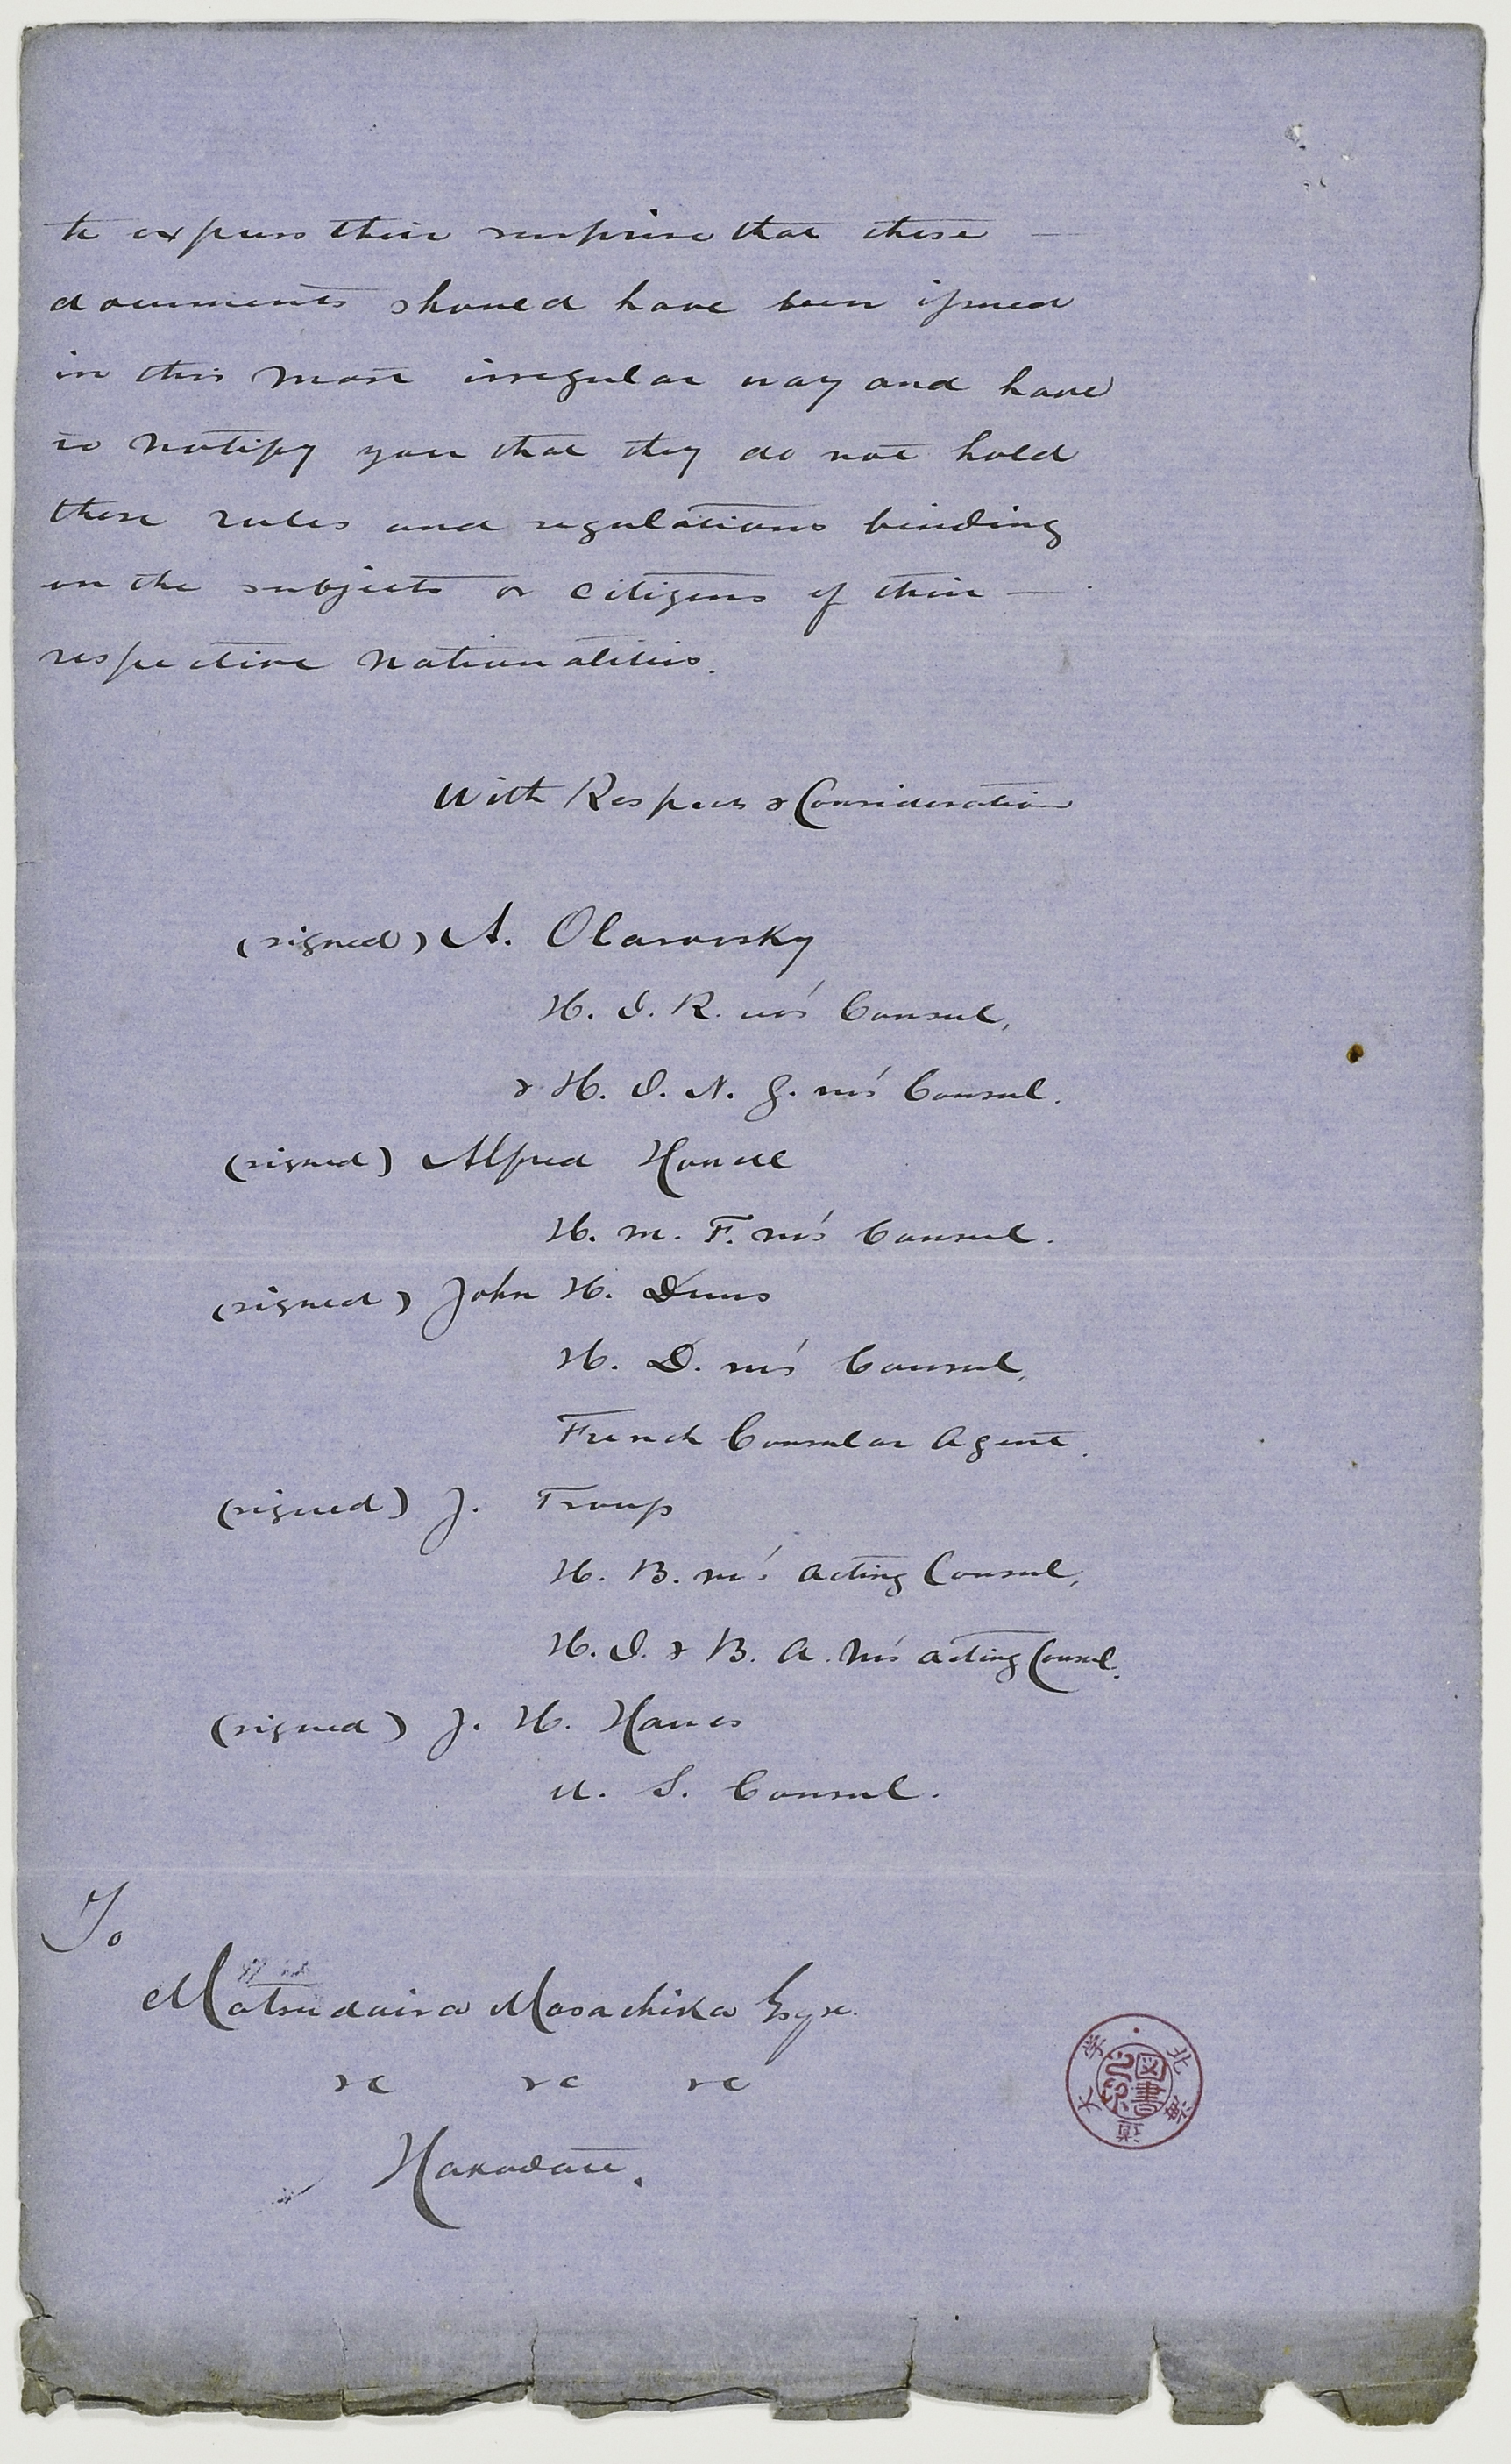 to express their surprise that these —
documents should have been issued
in this most irregular way and have
to notify you that they do not hold
these rules and regulations binding
on the subjects or citizens of their —
respective nationalities.
With Respect & Consideration
(signed) A. Olarovsky
H. I. R. M's Consul,
& H. I. N. G. M's Consul.
(signed) Alfred Howell
H. M. F. M's Consul.
(signed) John H. Duus
H. D. M's Consul,
French Consular Agent.
(signed) J. Troup
H. B. M's Acting Consul,
H. I. & B. A. M's Acting Consul.
(signed) J. H. Hawes
U. S. Consul.
To
Matsudaira Masachika Esqre.
&c &c &c
Hakodate.
北海道大学
図書之印